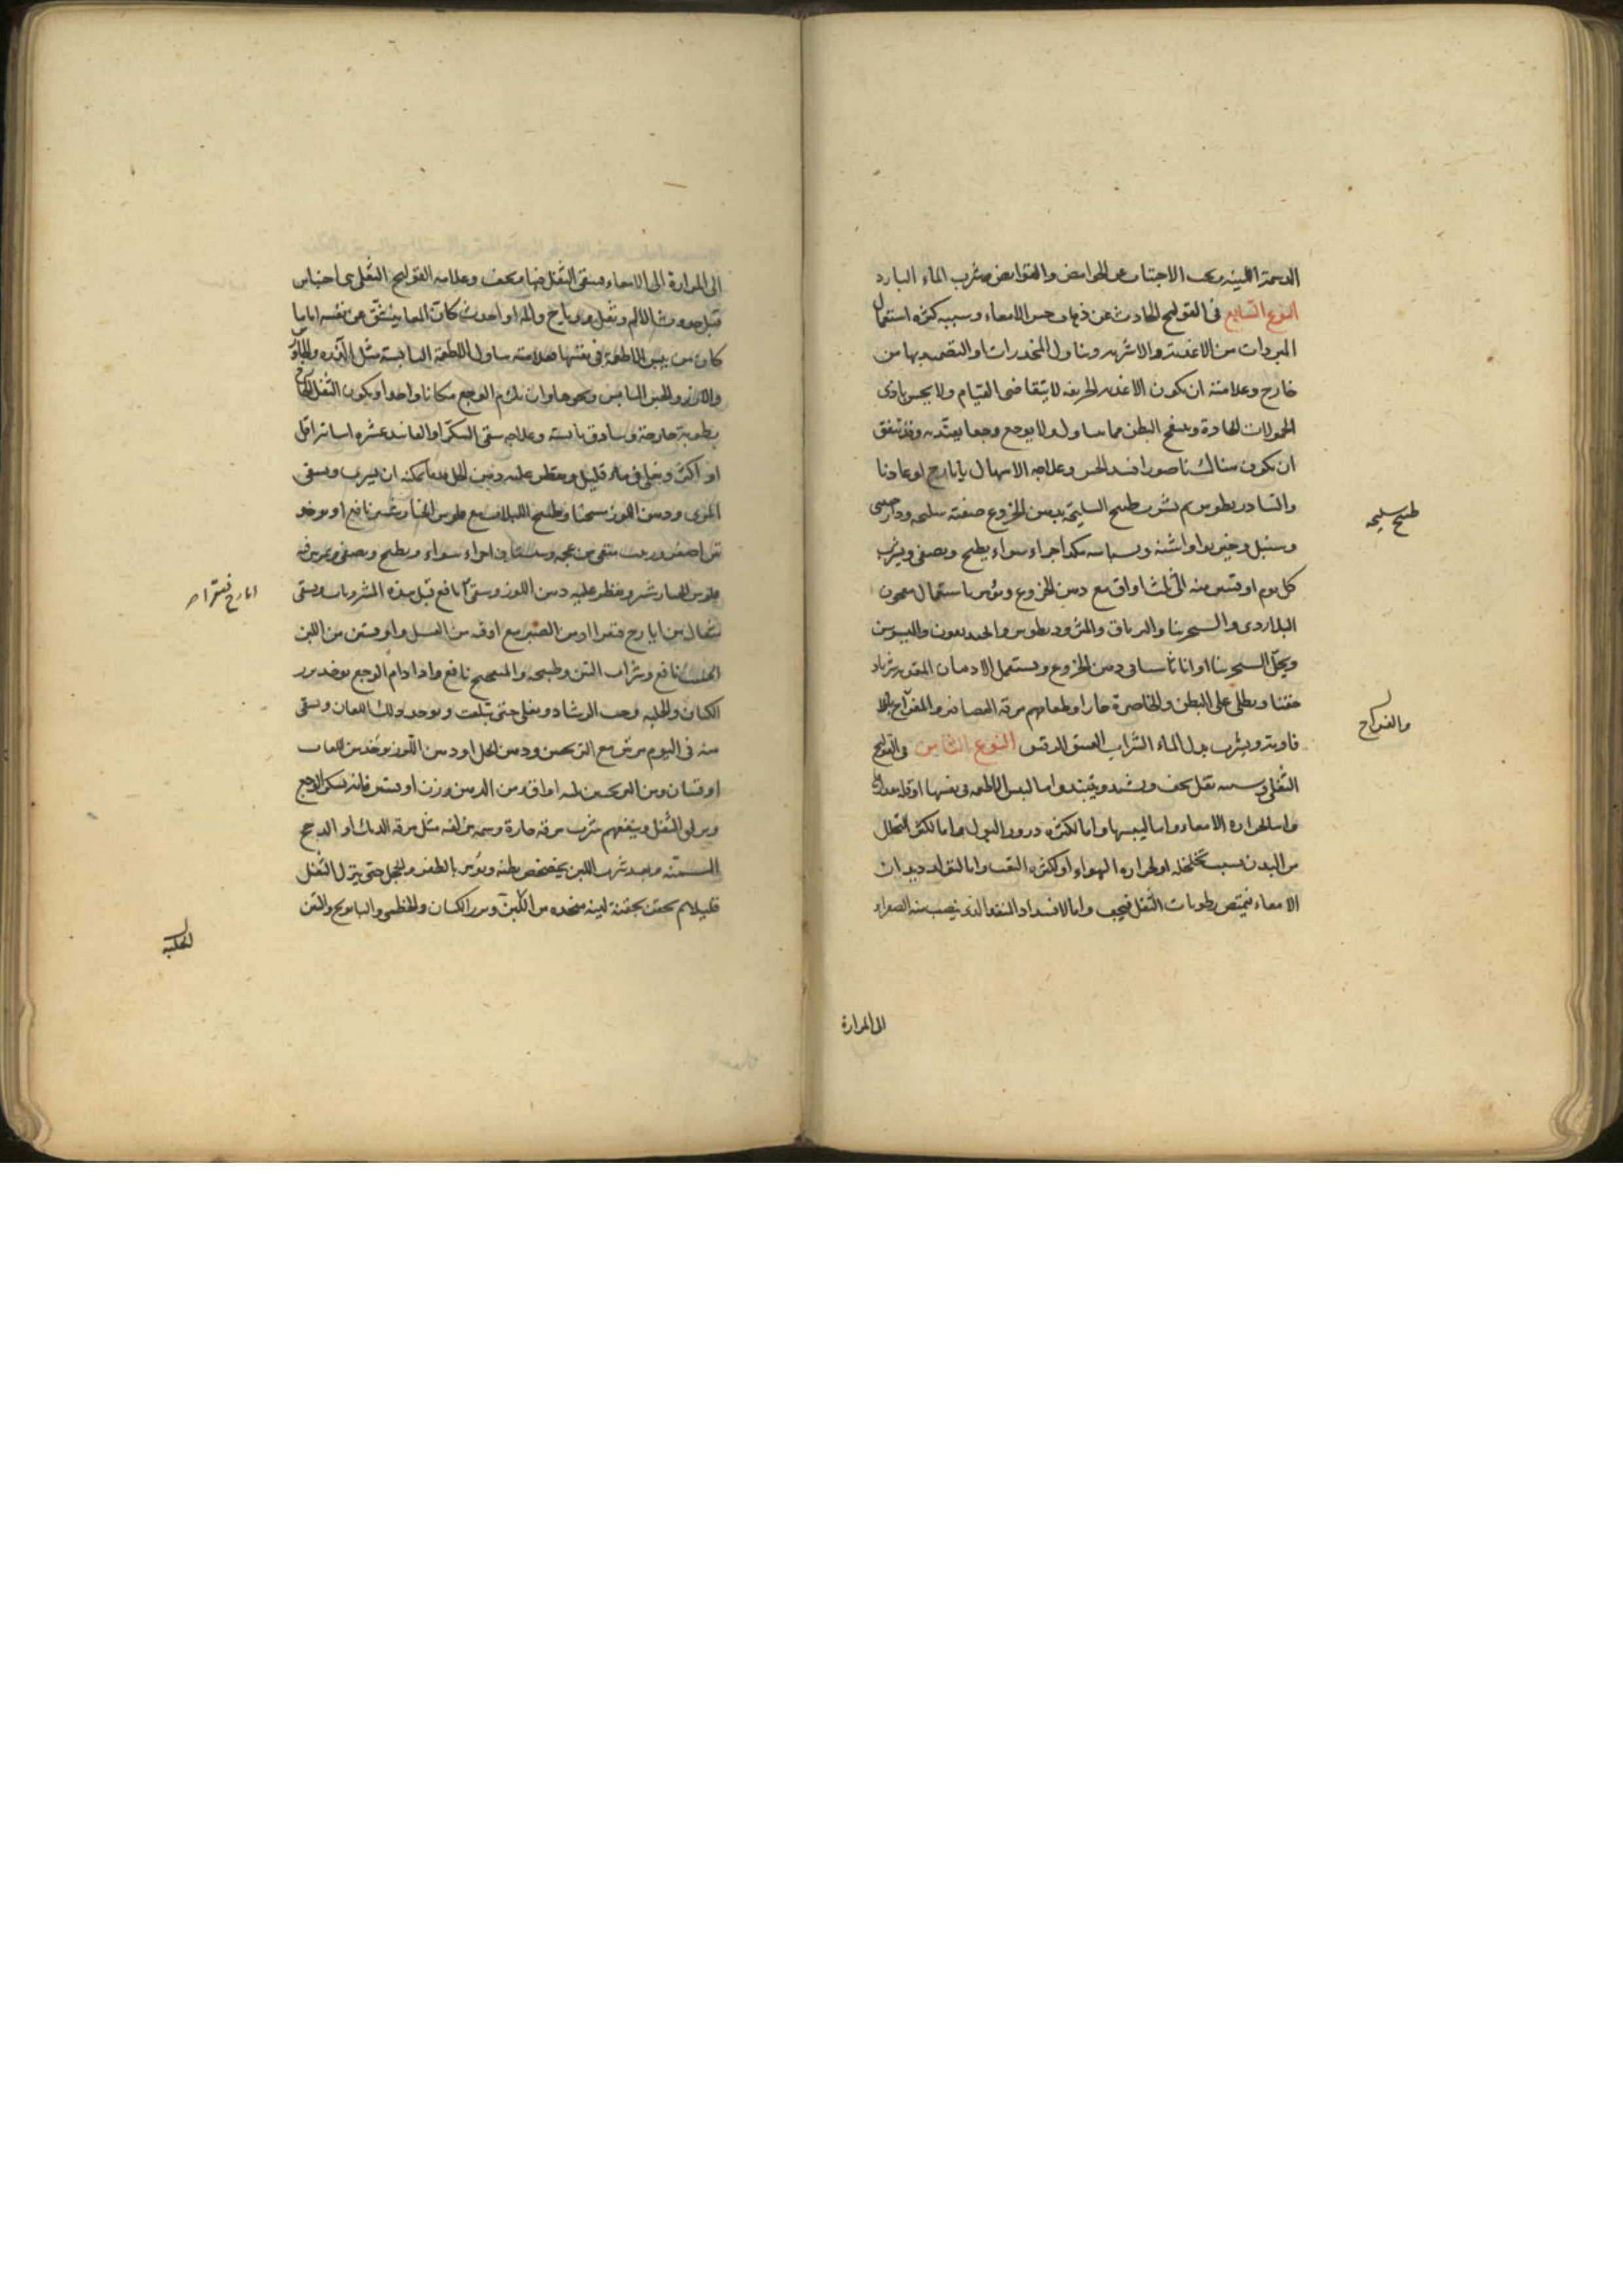 الدسمة اللينة ويجب الاجتناب عن الحوامض والقوابض وشرب الماء البارد
النوع السابع فى القولنج الحادث عن ذهاب حس الامعاء وسببه كثرة استعمال
المبردات من الاغذية والاشربة وتناول المخدرات او التضميد بها من
خارج وعلامته ان يكون الاغذية الحريفة لا يتقاضى القيام ولا يحس باذى
الحمولات الحادة وينفخ البطن مما يتناول ولا يوجع وجعا يعتد به وقد يتفق
ان يكون هناك ناصور افسد الحس وعلاجه الاسهال بايارج لوغاديا
والتيادريطوس ثم يشرب طبيخ السليخة بدهن الخروع صفته سليخه ودارصينى
وسنبل وخيربوا واشنه وبسباسه يكد اجزاء سواء يطبخ ويصفى ويشرب
كل يوم اوقيتين منه الى ثلث اواق مع دهن الخروع ويؤمر باستعمال معجون
البلاردى والسجرينا والترياق والمثروديطوس
ويحل السجرينا او اناناسيا فى دهن الخروع ويستعمل الادهان المقوية
حقنا ويطلى على البطن والخاصرة حارا وطعامهم مرقة العصافير والفراخ بالا
فاويه ويشرب بدل الماء الشراب العتيق الرقيق النوع الثامن فى القولنج
الثفلى وسببه ثفل يجف ويشتد ويتبندق اما ليبس الاطعمة فى نفسها او قلة مقدارها
واما لحرارة الامعاء واما ليبسها واما لكثرة درور البول واما لكثرة التحلل
من البدن بسبب تخلخله او لحرارة الهواء او لكثرة التعب واما لتولد ديدان
الامعاء فيمتص رطوبات الثفل فيجف واما لانسداد المنفذ الذى ينصب منه الصفراء
طبيخ سليخه
والفراخ
الى المرارة
الى المرارة الى الامعاء فيبقى الثفل فيها ويجف وعلامة القولنج الثفلى احتباس
قبل حدوث الالم وثفل ورياح والم اذا حدث كان المعا ينشق عن نفسه اما ما
كان من يبس الاطعمة فى نفسها فعلامته تناول الاطعمة اليابسة مثل الذره والجاورس
والارز والخبز اليابس ونحوها وان يلزم الوجع مكانا واحدا ويكون الثفل الخارج
برطوبة خارجة وبنادق يابسة وعلاجه سقى السكر او الفانيد عشرة اساتير اقل
او اكثر ويغلى فى ماء قليل ويقطر عليه دهن الخل ما يمكنه ان يشرب ويسقى
المرى ودهن اللوز مسخنا وطبيخ اللبلاب مع فلوس الخيارشنبر نافع او يوخذ
تين اصفر وزبيب منقى من عجمه وسبستان اجزاء سواء ويطبخ ويصفى ويمرس فيه
فلوس الخيارشنبر ويقطر عليه دهن اللوز ويسقى نافع قبل هذه المشروبات ويسقى
مثقال من ايارج فيقرا او من الصبر مع اوقية من العسل واوقيتين من اللبن
الحليب نافع وشراب التين وطبيخه والبنفسج نافع واذا دام الوجع يوخذ بزر
الكتان والحلبة وحب الرشاد ويغلى حتى يتلعب ويوخذ ذلك اللعاب ويسقى
منه فى اليوم مرتين مع الترنجبين ودهن الخل او دهن اللوز يؤخذ من اللعاب
اوقيتان ومن الترنجبين ثلثة اواق ومن الدهن وزن اوقيتين فانه يسكن الوجع
ويزلق الثفل وينفعهم شرب مرقة حارة دسمة مزلقة مثل مرقة الديك او الدجج
المسمنة وبعد شرب اللبن يخضخض بطنه ويؤمر بالطفر والحجل حتى ينزل الثفل
قليلا ثم يحقن بحقنة لينة متخذة من اللبن وبزر الكتان والخطمى والبابونج والتين
ايارج فيقرا
الحلبة